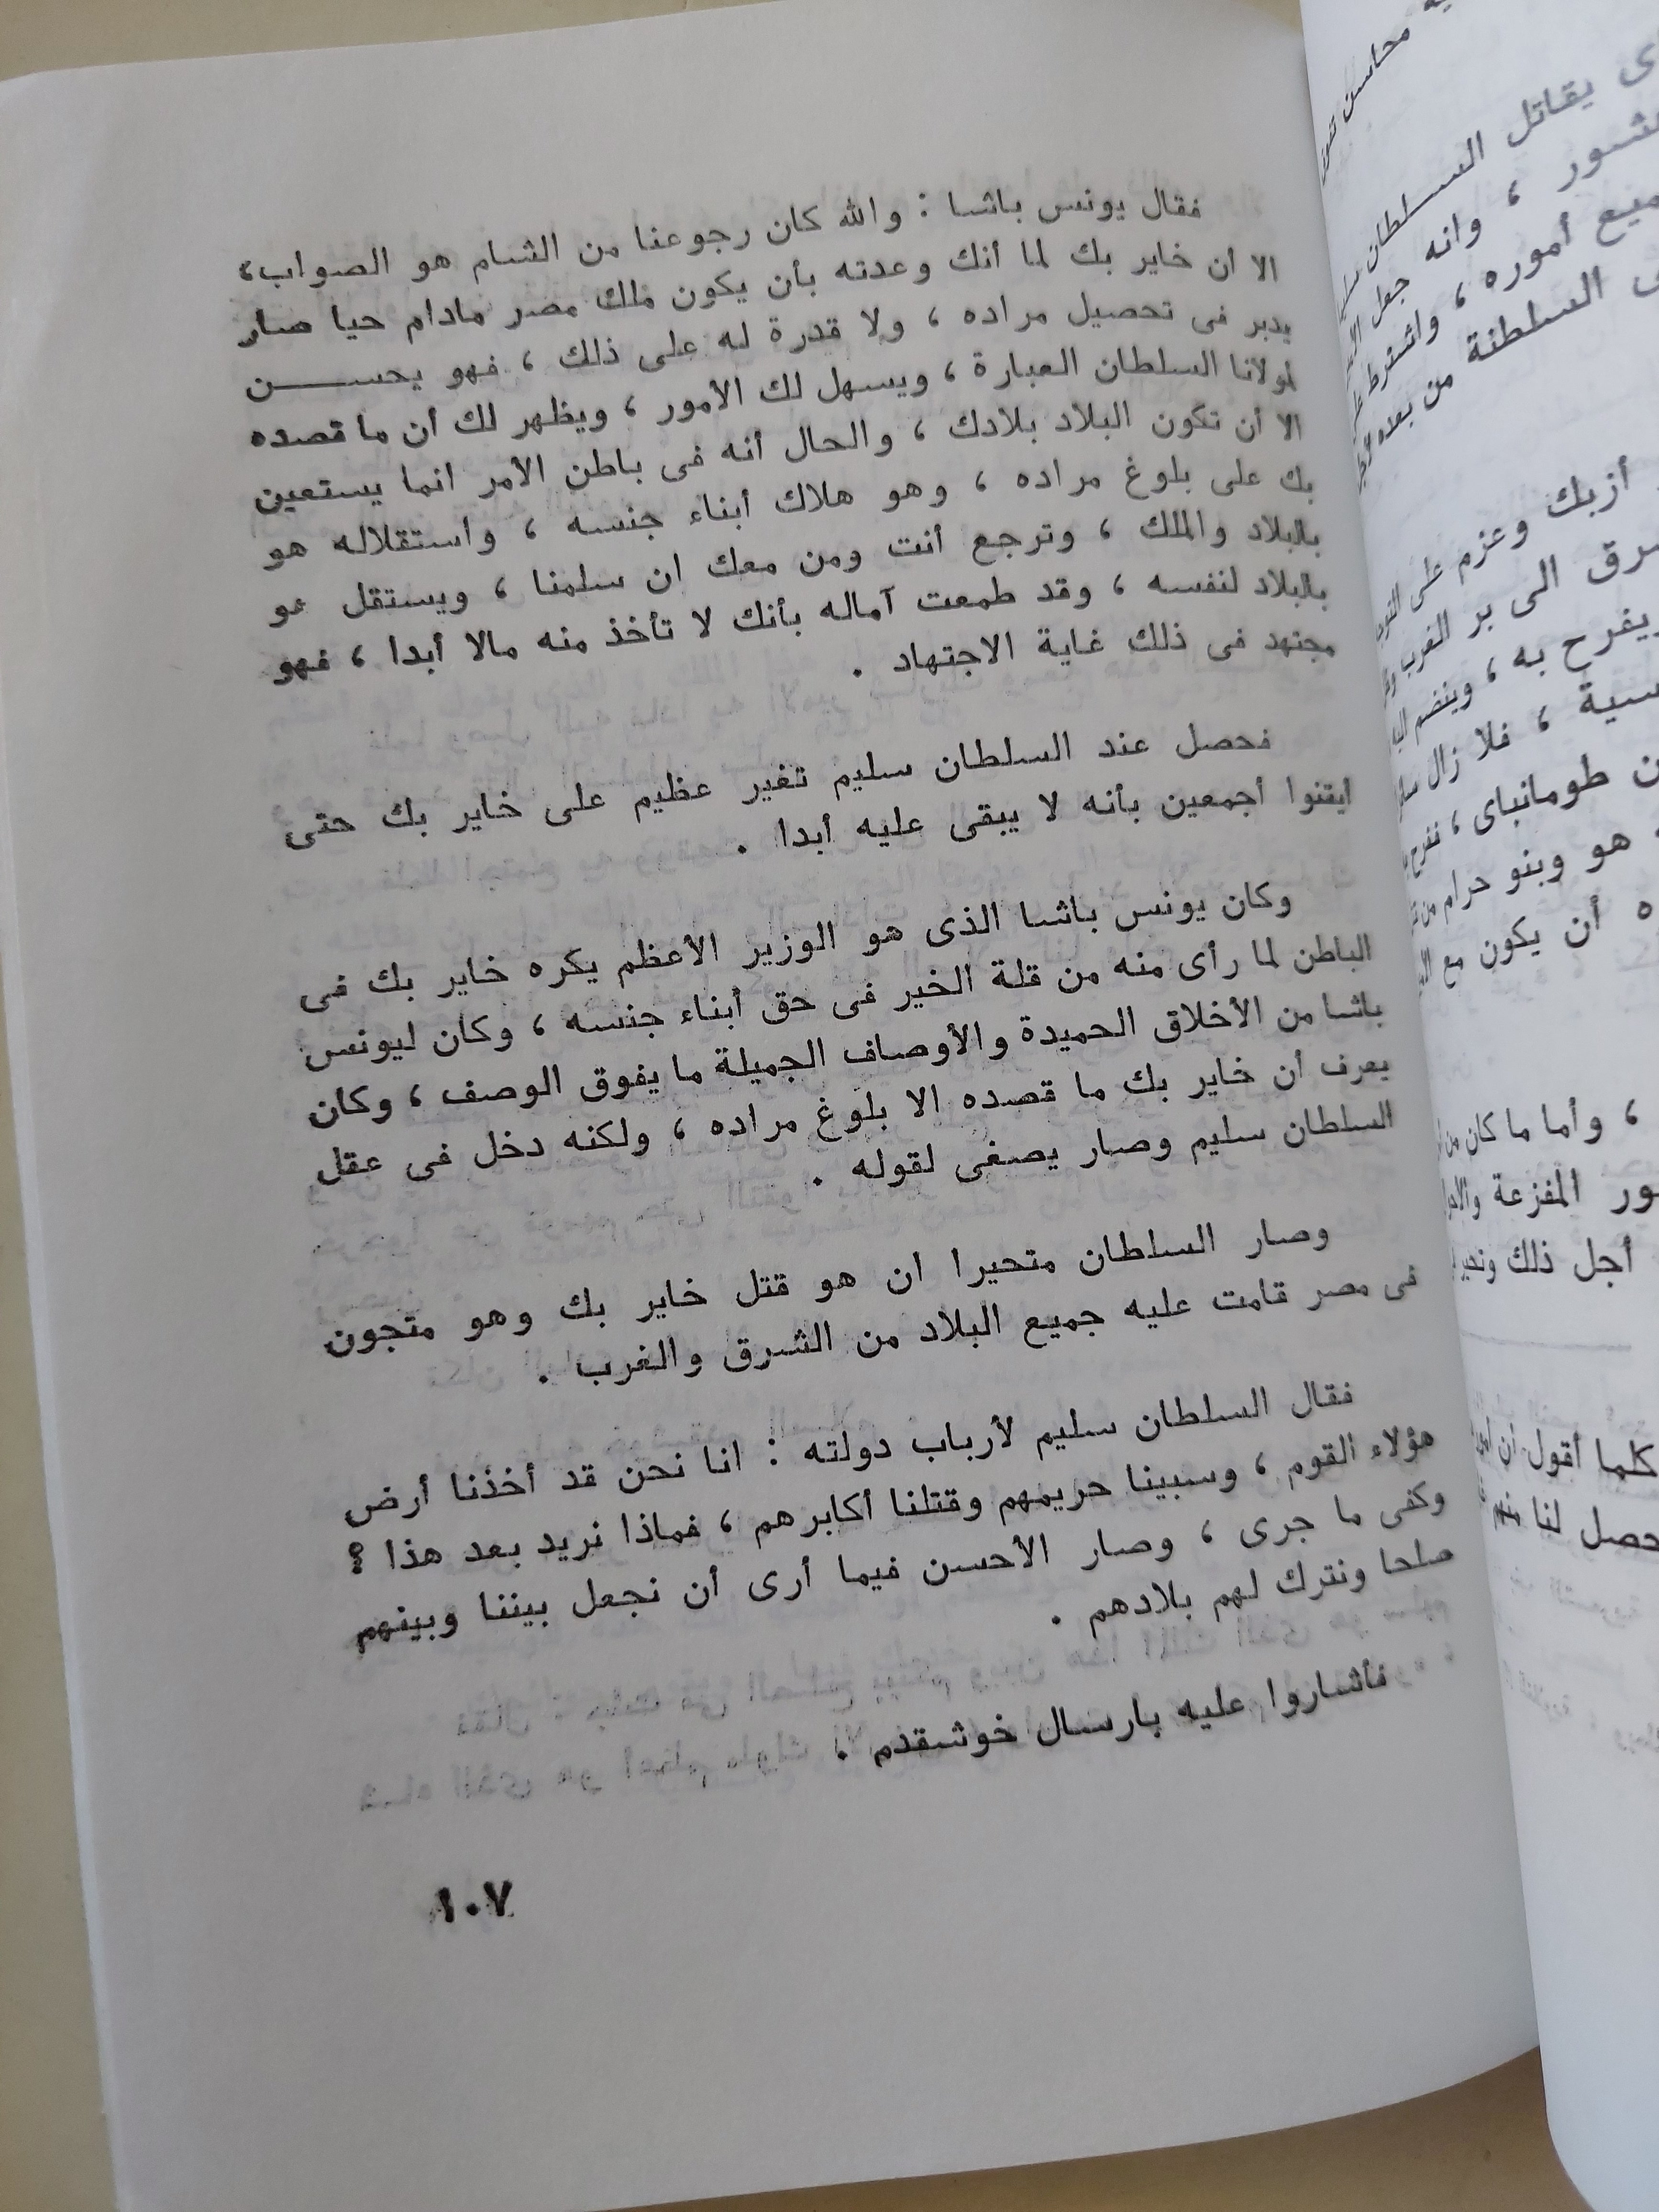 فقال يونس باشا : والله كان رجوعنا من الشام هو الصواب،
الا أن خاير بك لما أنك وعدته بأن يكون ملك مصر مادام حيا صار
يدبر فى تحصيل مراده ، ولا قدرة له على ذلك ، فهو يحســـن
لمولانا السلطان العبارة ، ويسهل لك الأمور ، ويظهر لك أن ما قصده
الا أن تكون البلاد بلادك ، والحال أنه فى باطن الأمر انما يستعين
بك على بلوغ مراده ، وهو هلاك أبناء جنسه ، واستقلاله هو
بالبلاد والملك ، وترجع أنت ومن معك ان سلمنا ، ويستقل هو
بالبلاد لنفسه ، وقد طمعت آماله بأنك لا تأخذ منه مالا أبدا ، فهو
مجتهد فى ذلك غاية الاجتهاد .
فحصل عند السلطان سليم تغير عظيم على خاير بك حتى
أيقنوا أجمعين بأنه لا يبقى عليه أبدا .
وكان يونس باشا الذى هو الوزير الأعظم يكره خاير بك فى
الباطن لما رأى منه من قلة الخير فى حق أبناء جنسه ، وكان ليونس
باشا من الأخلاق الحميدة والأوصاف الجميلة ما يفوق الوصف ، وكان
يعرف أن خاير بك ما قصده الا بلوغ مراده ، ولكنه دخل فى عقل
السلطان سليم وصار يصغى لقوله .
وصار السلطان متحيرا ان هو قتل خاير بك وهو متجون
فى مصر قامت عليه جميع البلاد من الشرق والغرب .
فقال السلطان سليم لأرباب دولته : انا نحن قد أخذنا أرض
هؤلاء القوم ، وسبينا حريمهم وقتلنا أكابرهم ، فماذا نريد بعد هذا ؟
وكفى ما جرى ، وصار الأحسن فيما أرى أن نجعل بيننا وبينهم
صلحا ونترك لهم بلادهم .
فأشاروا عليه بارسال خوشقدم .
١٠٧
محاسن
يقاتل السلطان
، وانه جعل
أموره ، واشترط
السلطنة من بعده
أزبك وعزم على
الى بر الغرب
ويفرح به ، وينضم
، فلا زال
طومانباى ،
هو وبنو حرام من
أن يكون مع
، وأما ما كان من
المفزعة
أجل ذلك
كلما أقول أن
حصل لنا منهم